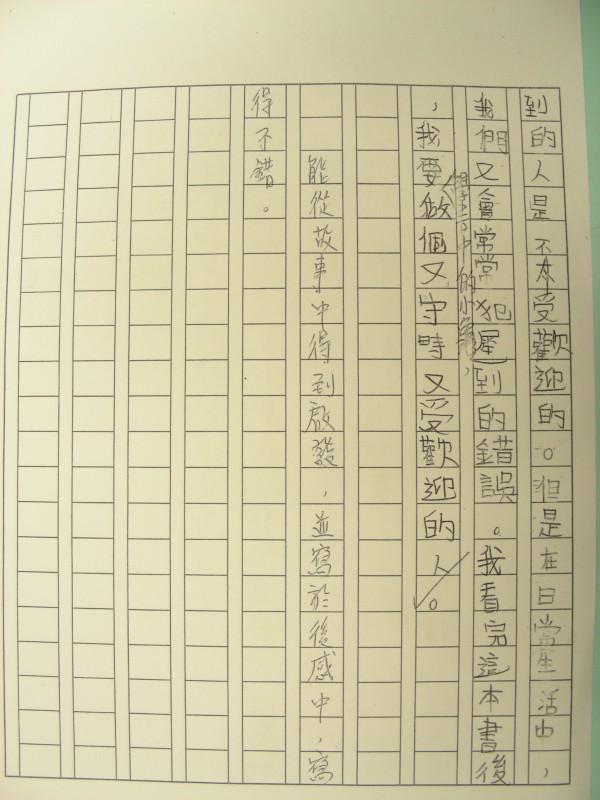 到的人是不太受歡迎的。但是在日常生活中，
我們又會常常犯遲到的錯誤。我看完這本書後
中的小
，我要做個又守時又受歡迎的人。
能從故事中得到啟發，並寫於後感中，寫
得不錯。